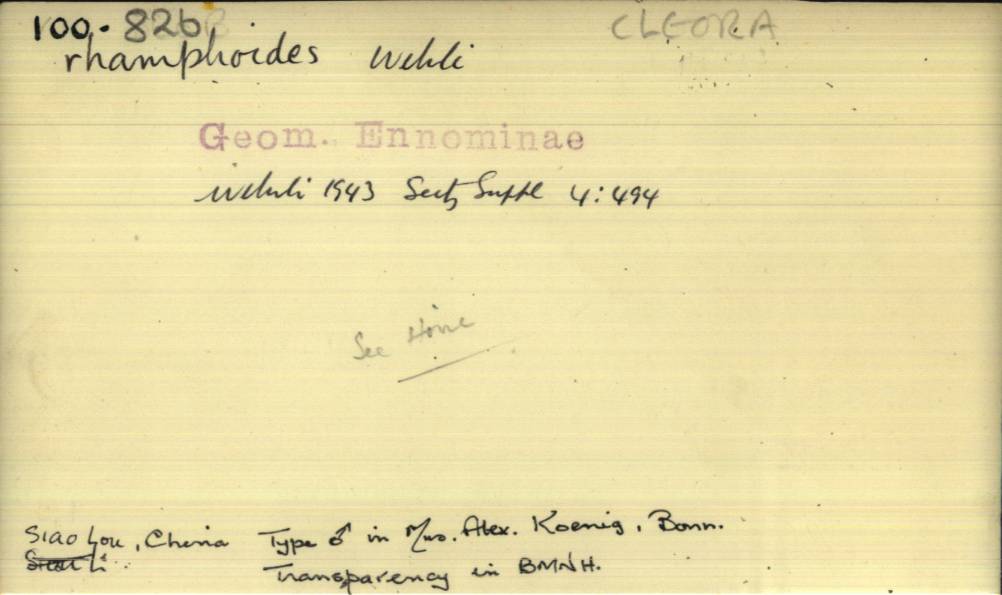 100. 826 CLEORA
rhamphoides Wehrli
Geom. Ennominae
Wehrli 1943 Seitz Suppl 4: 494
See Höne
Siao Lou, China Type ♂ in Mus. Alex. Koenig, Bonn.
Transparency in BMNH.